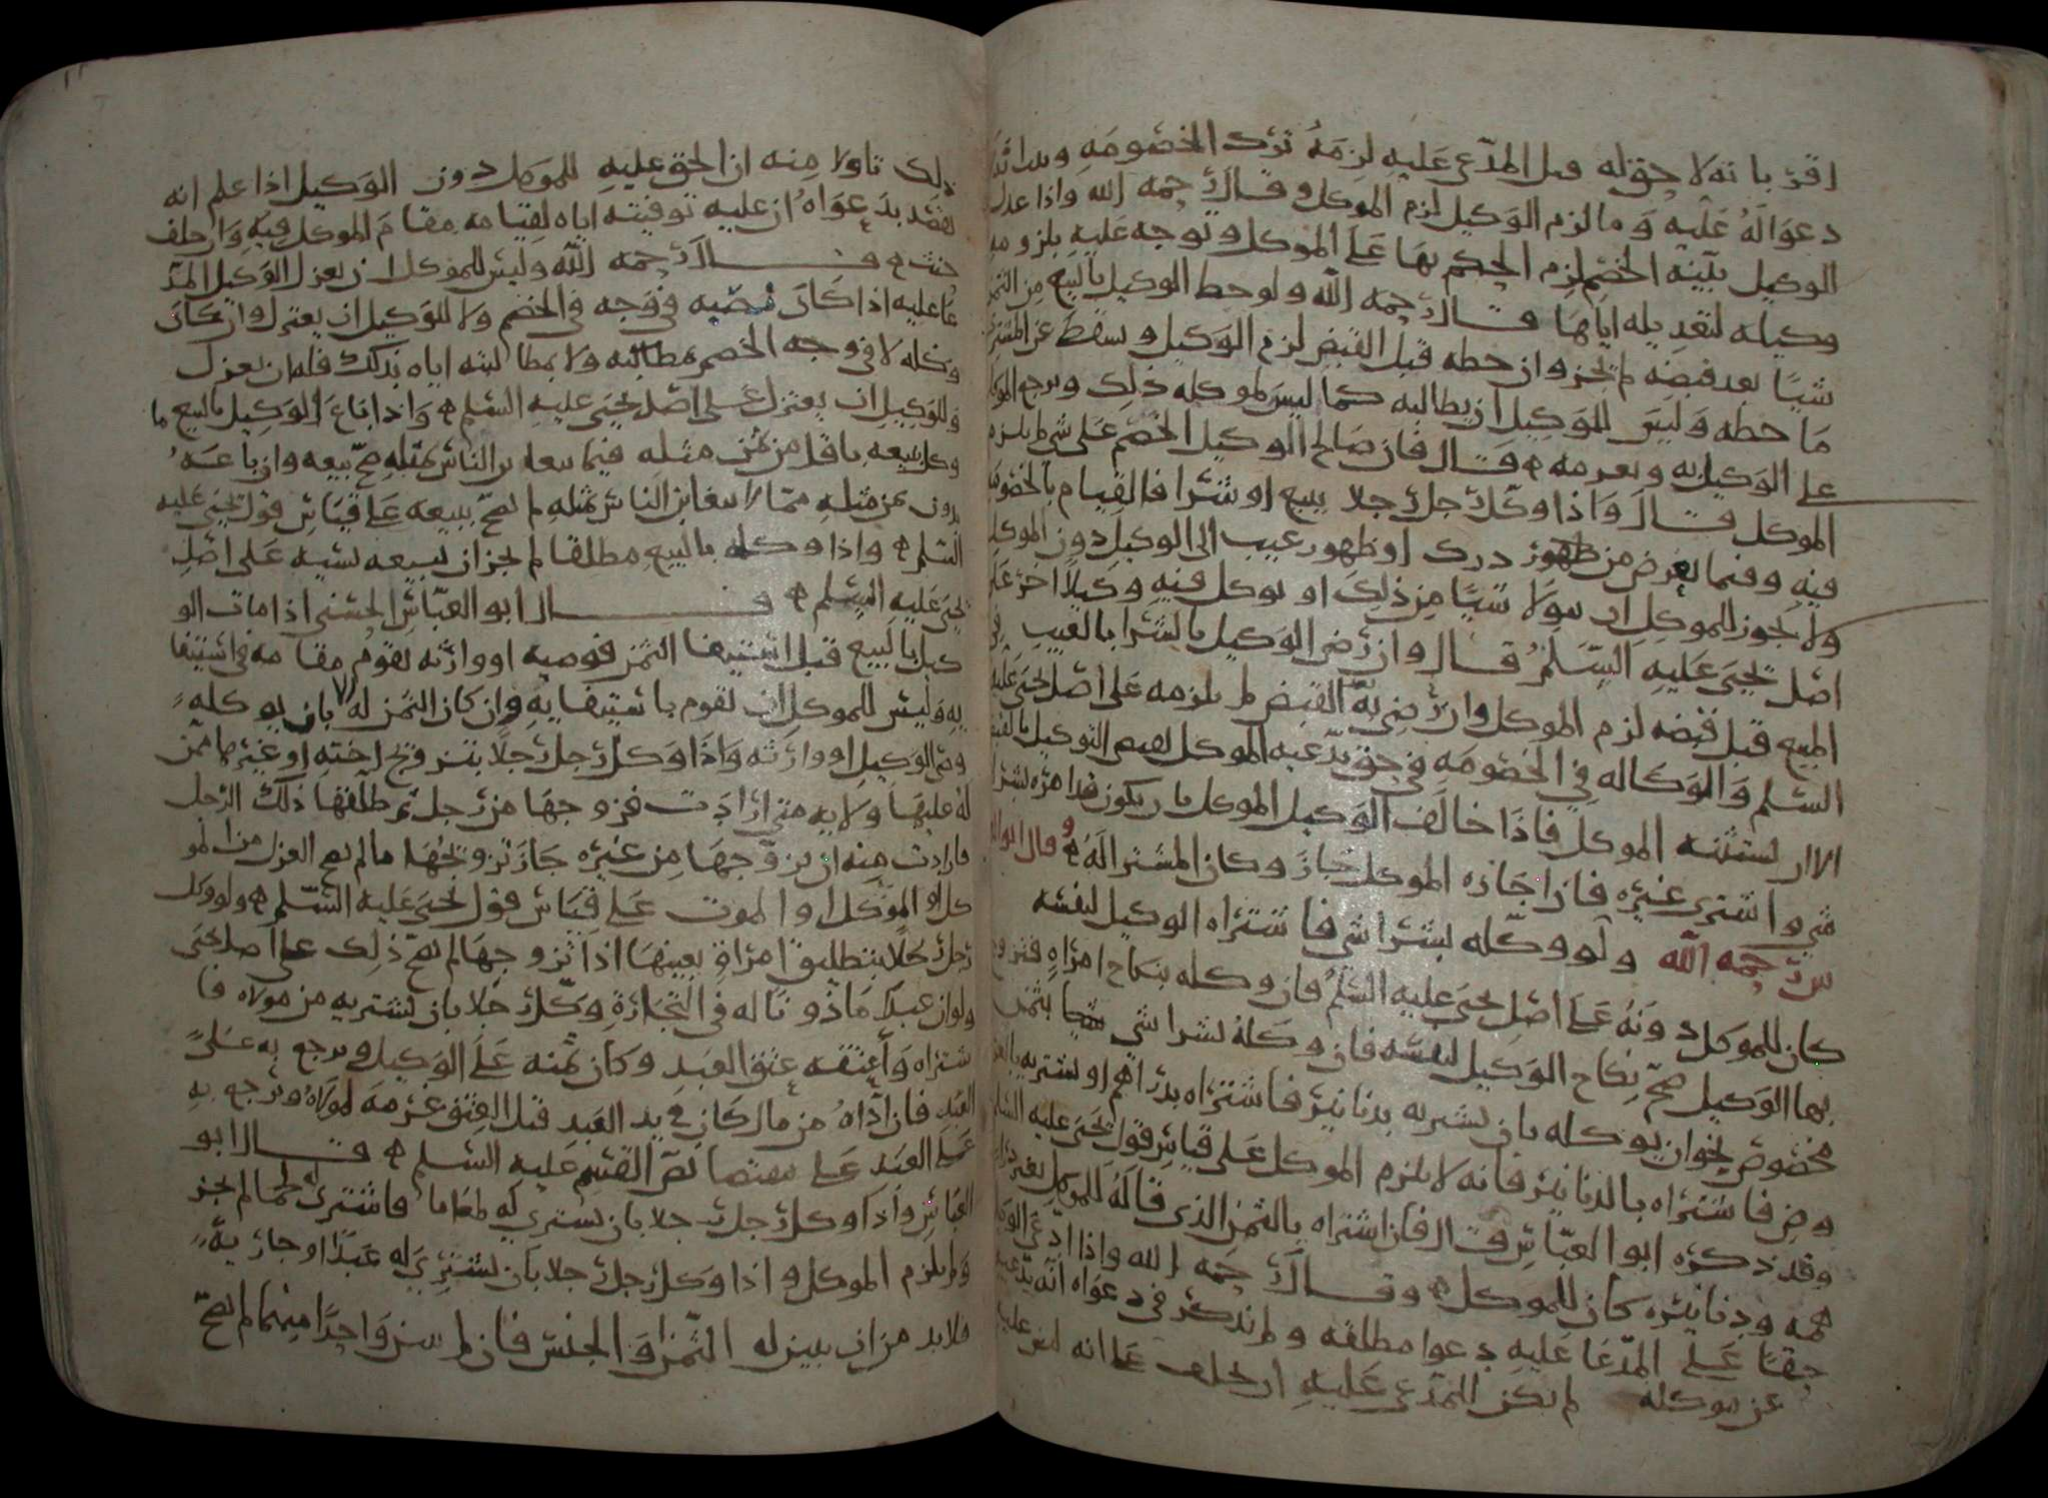 اقر بانه لا حق له قبل المدعى عليه لزمه ترك الخصومه
دعواله عليه وما لزم الوكيل لزم الموكل وقال رحمه الله واذا عدل
الوكيل بينه الخصم لزم الحكم بها على الموكل وتوجه عليه بلزومه
وكيله لتعديله اياها قال رحمه الله ولو حط الوكيل بالبيع من الثمن
شيا بعد قبضه لم يجز وان حطه قبل القبض لزم الوكيل وسقط عن المشتري
ما حطه وليس للوكيل ان يطالبه كما ليس لموكله ذلك ويرجع الموكل
على الوكيل به ويغرمه قال فان صالح الوكيل الخصم على شي لم يلزم
الموكل قال واذا وكل رجل رجلا ببيع او شرا فالقيام بالخصومه
فيه وفيما يعرض من ظهور درك او ظهور عيب الى الوكيل دون الموكل
ولا يجوز للموكل ان يتولا شيا من ذلك او يوكل فيه وكيلا اخر على
اصل يحيى عليه السلم قال وان رضي الوكيل بالشرا بالعيب في
المبيع قبل قبضه لزم الموكل وان رضي به القبض لم يلزمه على اصل يحيى عليه
السلم والوكاله في الخصومه في حق يدعيه الموكل التوكيل بالقبض
الا ان يستثنيه الموكل فاذا خالف الوكيل الموكل بان يكون امره بشرا
شي واشترى غيره فان اجازه الموكل جاز وكان المشترا له وقال ابو العبا
س رحمه الله ولو وكله بشرا شي فاشتراه الوكيل لنفسه
كان للموكل دونه على اصل يحيى عليه السلم فان وكله بنكاح امراه فتزوج
بها الوكيل صح نكاح الوكيل لنفسه فان وكله بشرا شي بثمن
مخصوص نحو ان يوكله بان يشتريه بدنانير فاشتراه بدراهم او يشتريه بالعر
وض فاشتراه بالدنانير فانه لا يلزم الموكل على قياس قول يحيى عليه السلم
وقد ذكره ابو العباس قال فان اشتراه بالثمن الذي قاله للموكل بغير درا
همه ودنانيره كان للموكل وقال رحمه الله واذا ادعى الوكيل
حقا على المدعا عليه دعوا مطلقه ولم يذكر في دعواه انه يدعيه
عن موكله لم يكن للمدعى عليه ان يحلف على انه ليس عليه
ذلك تاولا منه ان الحق عليه للموكل دون الوكيل اذا علم انه
يقصد بدعواه ان عليه توفيته اياه لقيامه مقام الموكل فيه وان حلف
حنث قال رحمه الله وليس للموكل ان يعزل الوكيل المد
عا عليه اذا كان نصبه في وجه الخصم ولا للوكيل ان يعتزل وان كان
وكله لا في وجه الخصم بمطالبته ولا بمطالبته اياه بذلك فله ان يعزل
وللوكيل ان يعتزل على اصل يحيى عليه السلم واذا باع الوكيل بالبيع ما
وكل ببيعه باقل من ثمن مثله فيما يتغابن الناس بمثله صح بيعه وان باعه
بدون ثمن مثله مما لا يتغابن الناس بمثله لم يصح بيعه على قياس قول يحيى عليه
السلم واذا وكله بالبيع مطلقا لم يجز ان يبيعه نسيه على اصل
يحيى عليه السلم قال ابو العباس الحسني اذا مات الو
كيل بالبيع قبل استيفا الثمن فوصيه او وارثه يقوم مقامه في استيفا
يه وليس للموكل ان يقوم باستيفايه وان كان الثمن له الا بان يوكله
وصي الوكيل او وارثه واذا وكل رجل رجلا بتزويج اخته او غيرها ممن
له عليها ولايه متى ارادت فزوجها من رجل ثم طلقها ذلك الرجل
فارادت منه ان يزوجها من غيره جاز تزويجها ما لم يصح العزل من المو
كل او الموت على قياس قول يحيى عليه السلم ولو وكل
رجل رجلا بتطليق امراة بعينها اذا تزوجها لم يصح ذلك على اصل يحيى
ولو ان عبدا ماذونا له في التجارة وكل رجلا بان يشتريه من مولاه فا
شتراه واعتقه عتق العبد وكان ثمنه على الوكيل ويرجع به على
العبد فان اداه من مال كان في يد العبد قبل العتق غرمه لمولاه ويرجع به
على العبد على نص القسم عليه السلم قال ابو
العباس واذا وكل رجل رجلا بان يشتري له طعاما فاشترى له لحما لم يجز
ولم يلزم الموكل واذا وكل رجل رجلا بان يشتري له عبدا او جاريه
فلا بد من ان يبين له الثمن او الجنس فان لم يبين واحدا منهما لم يصح